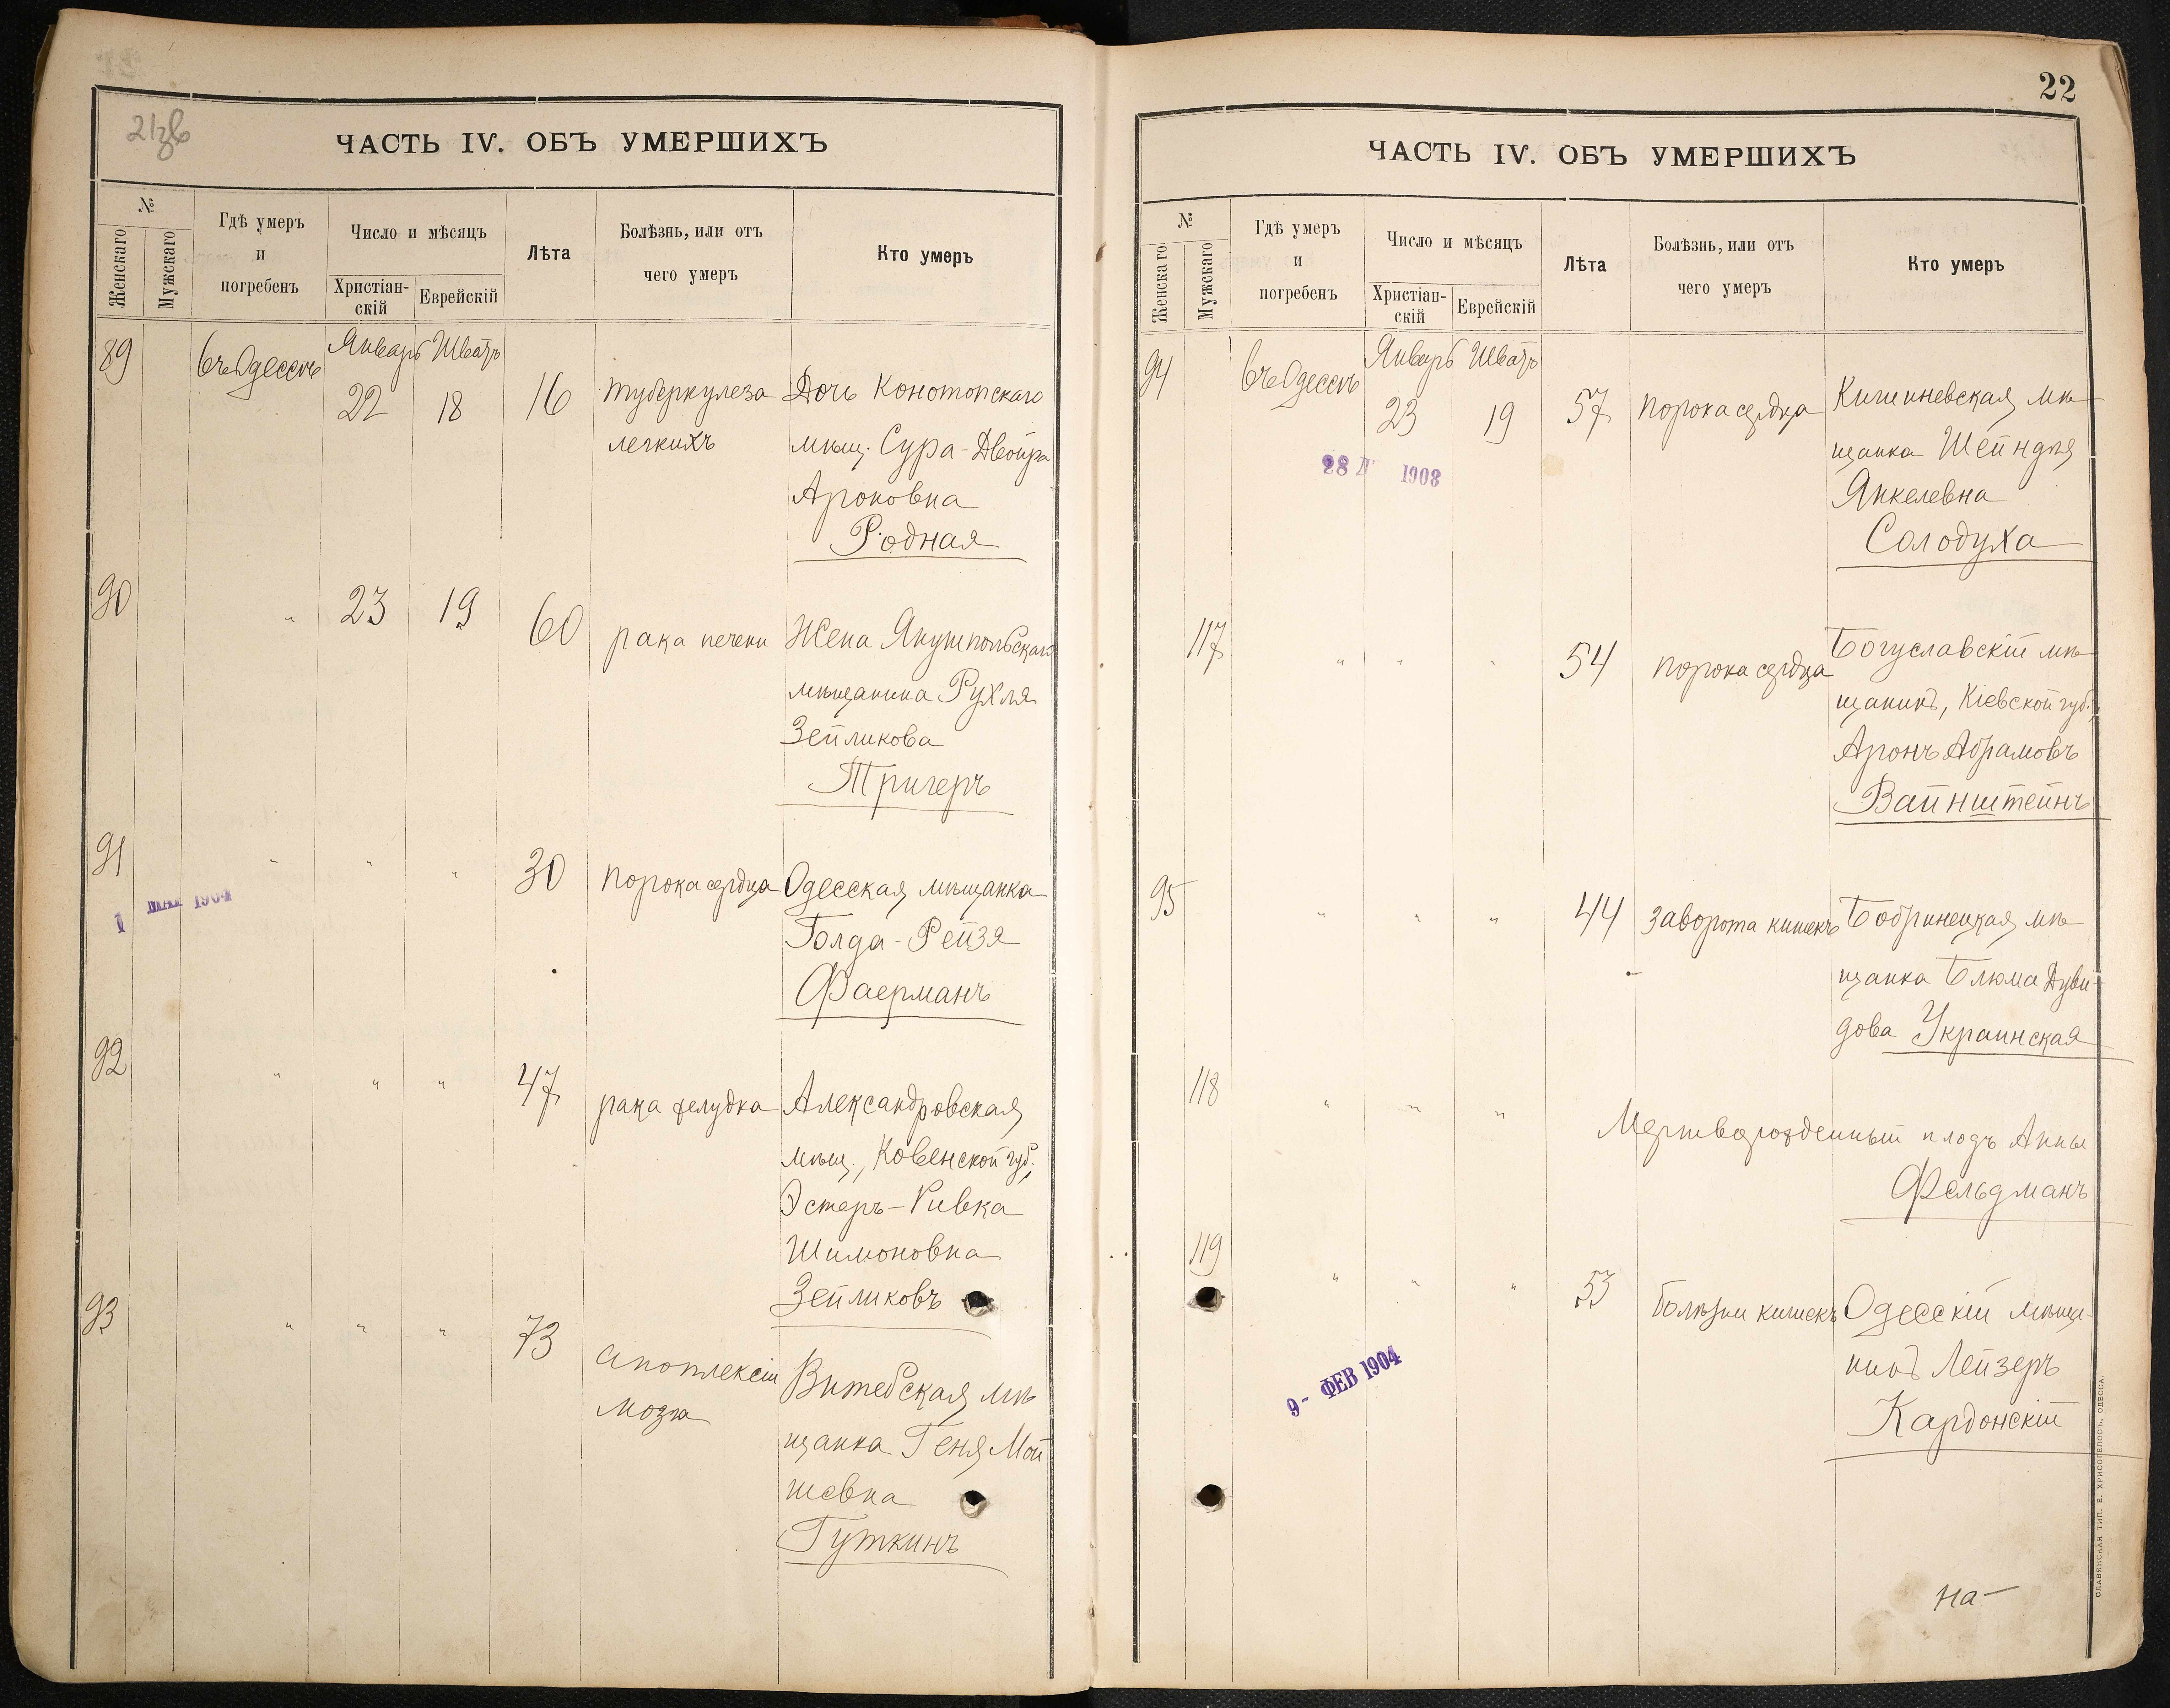 21зв
ЧАСТЬ IV. ОБЪ УМЕРШИХЪ
№
Женскаго
Мужскаго
Гдѣ умеръ
и
погребенъ
Число и мѣсяцъ
Христіан-
скій
Еврейскій
Лѣта
Болѣзнь, или отъ
чего умеръ
Кто умеръ
89 въ Одессѣ Январь Шватъ
22 18 16 туберкулеза Дочь Конотопскаго
легкихъ мѣщ. Сура-Двойра
Ароновна
Родная
90 " 23 19 60 рака печени Жена Янушпольскаго
мѣщанина Рухля
Зейликова
Тригеръ
91 " " " 30 порока сердца Одесская мѣщанка
1 МАР 1904
Голда-Рейзя
Фаерманъ
92 " " " 47 рака желудка Александровская
мѣщ., Ковенской губ.,
Эстеръ-Ривка
Шимоновна
Зейликовъ
93 " " " 73 апоплексіи Витебская мѣ
мозга
щанка Геня Мой
шевна
Гуткинъ
22
ЧАСТЬ IV. ОБЪ УМЕРШИХЪ
№
Женскаго
Мужскаго
Гдѣ умеръ
и
погребенъ
Число и мѣсяцъ
Христіан-
скій
Еврейскій
Лѣта
Болѣзнь, или отъ
чего умеръ
Кто умеръ
94 въ Одессѣ Январь Шватъ
23 19 57 порока сердца Кишиневская мѣ
28 1903
щанка Шейндля
Янкелевна
Солодуха
117 " " " 54 порока сердца Богуславскій мѣ
щанинъ, Кіевской губ.,
Аронъ Абрамовъ
Вайнштейнъ
95 " " " 44 заворота кишекъ Бобринецкая мѣ
щанка Блюма Дуви-
дова Украинская
118 " " " Мертворожденный плодъ Анны
Фельдманъ
119 " " " 53 болѣзни кишекъ Одесскій мѣща-
нинъ Лейзеръ
9- ФЕВ 1904
Кардонскій
на—
СЛАВЯНСКАЯ ТИП. Е. ХРИСОГЕЛОСЪ, ОДЕССА.